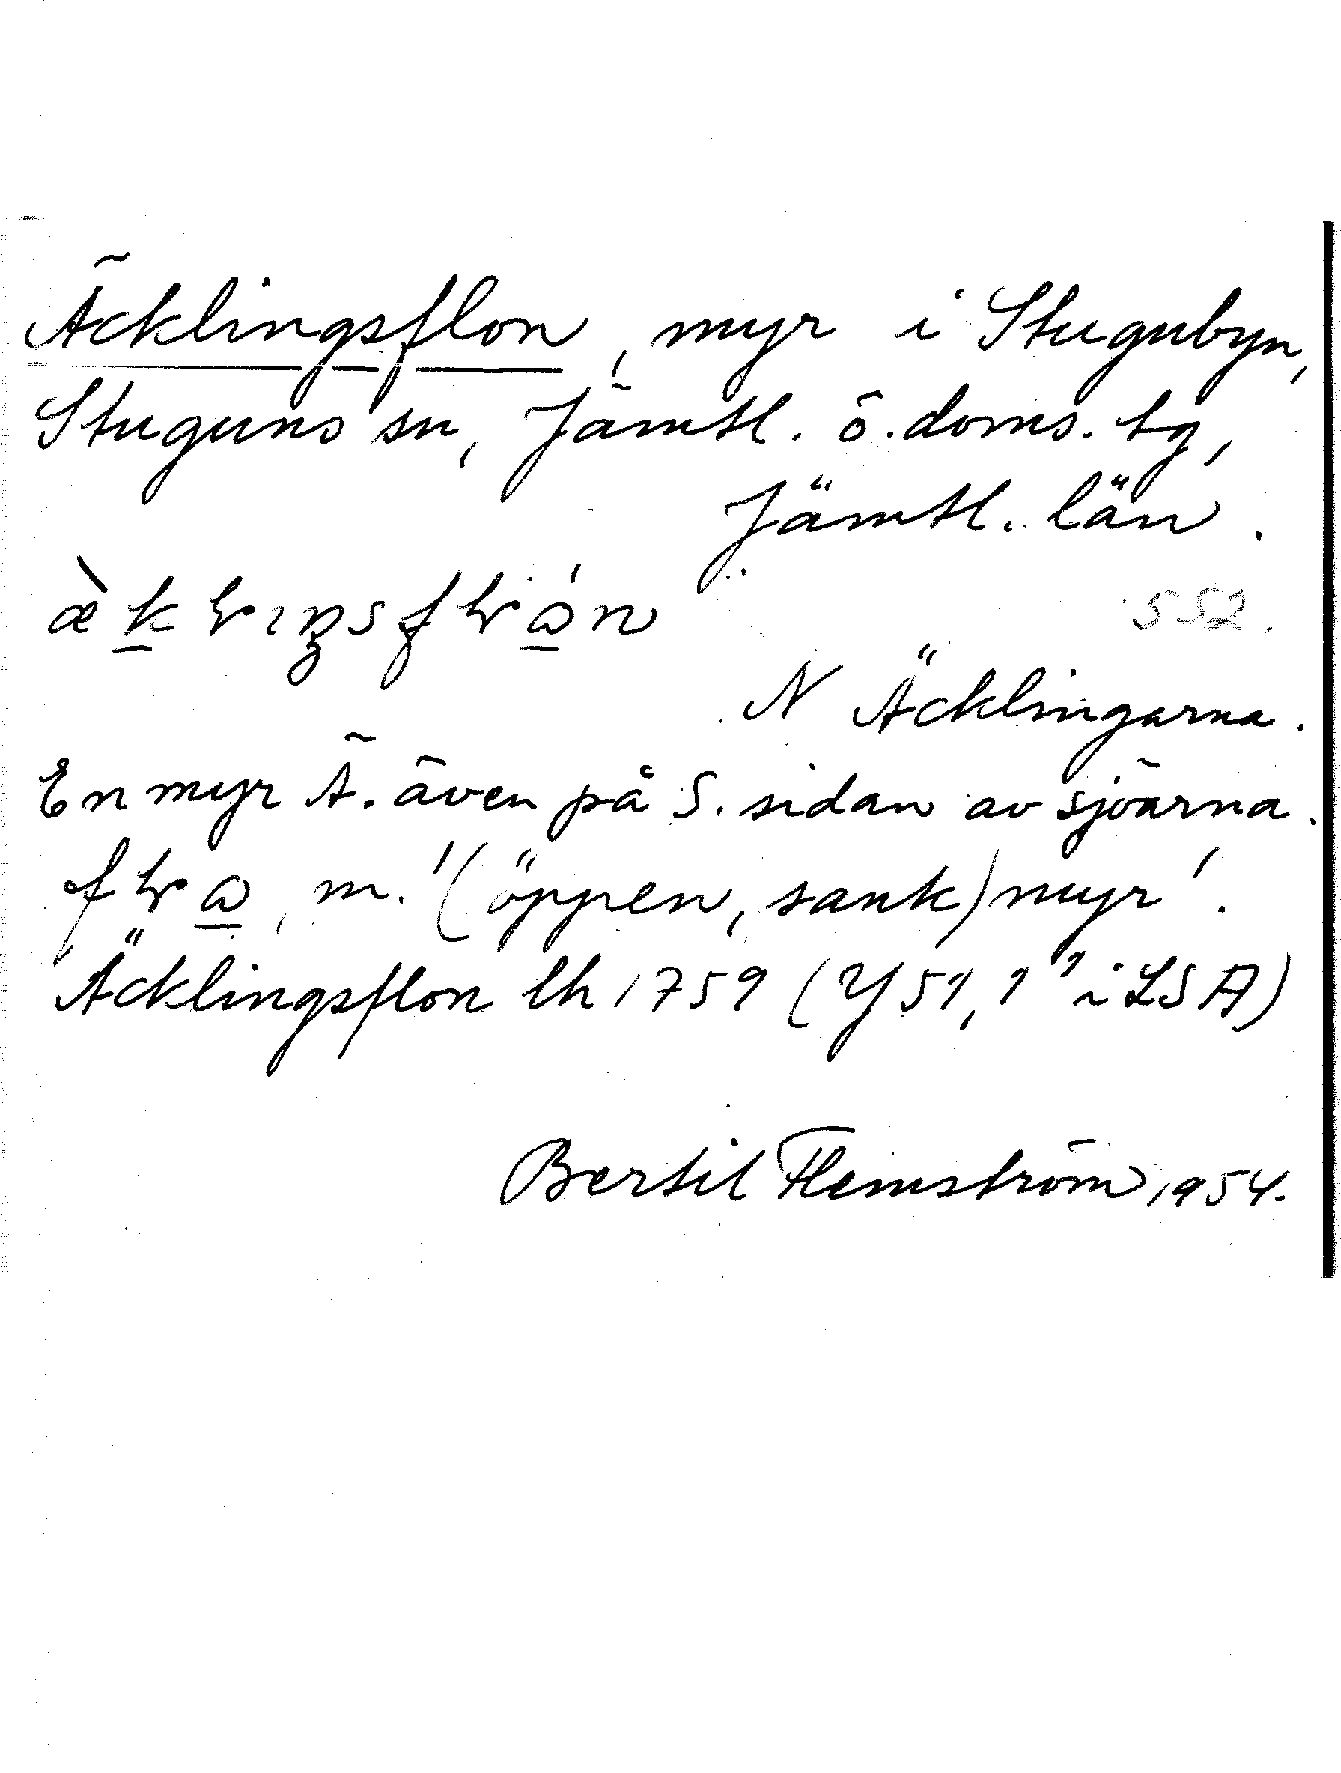 Äcklingsflon, myr i Stugubyn,
Stuguns sn, Jämtl. ö. doms. tg,
Jämtl. län.
552.
N Äcklingarna.
En myr Ä. även på S. sidan av sjöarna.
m. '(öppen, sank) myr'.
Äcklingsflon lh 1759 (Y51, 1¹ i LSA)
Bertil Flemström 1954.